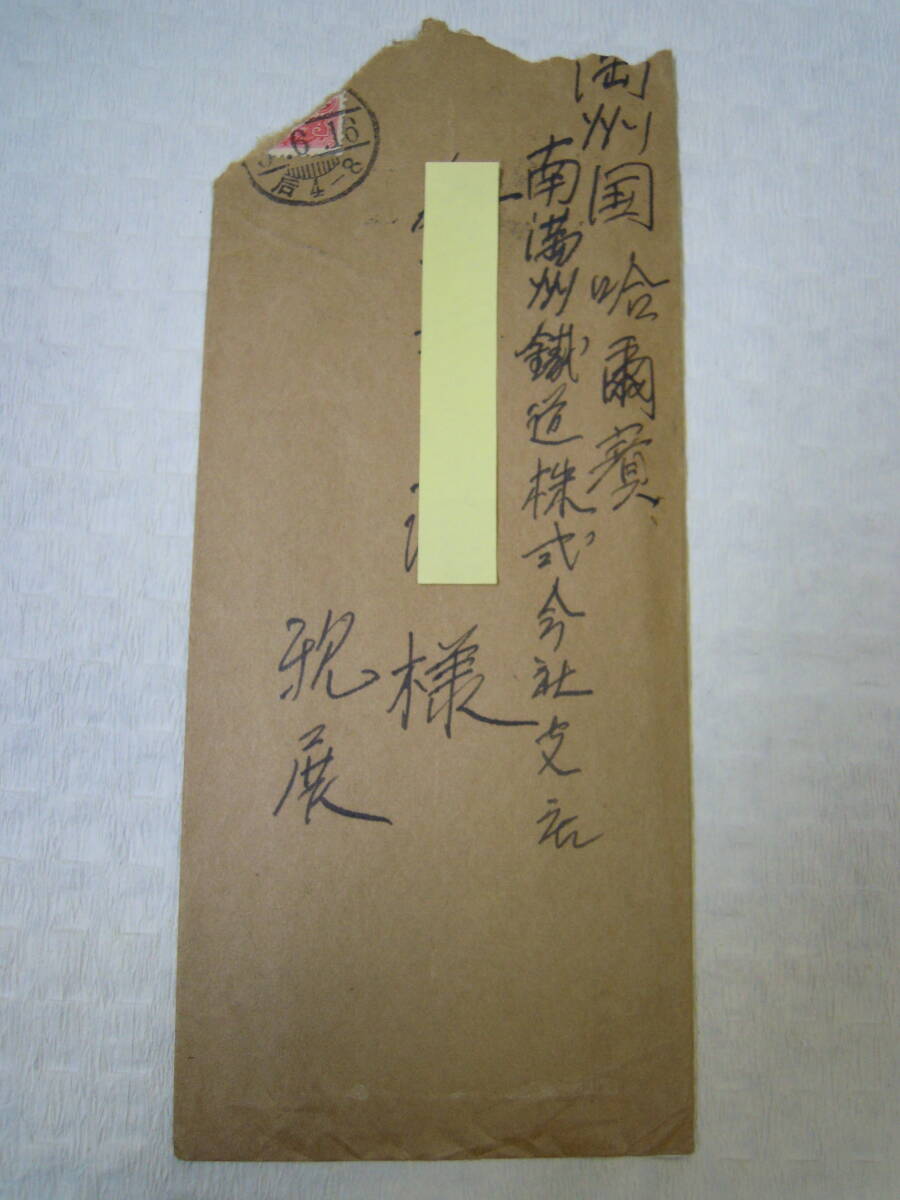 満州国 哈爾賓
南満州鐵道株式会社支店
様
親展
.6.16
局 4-8